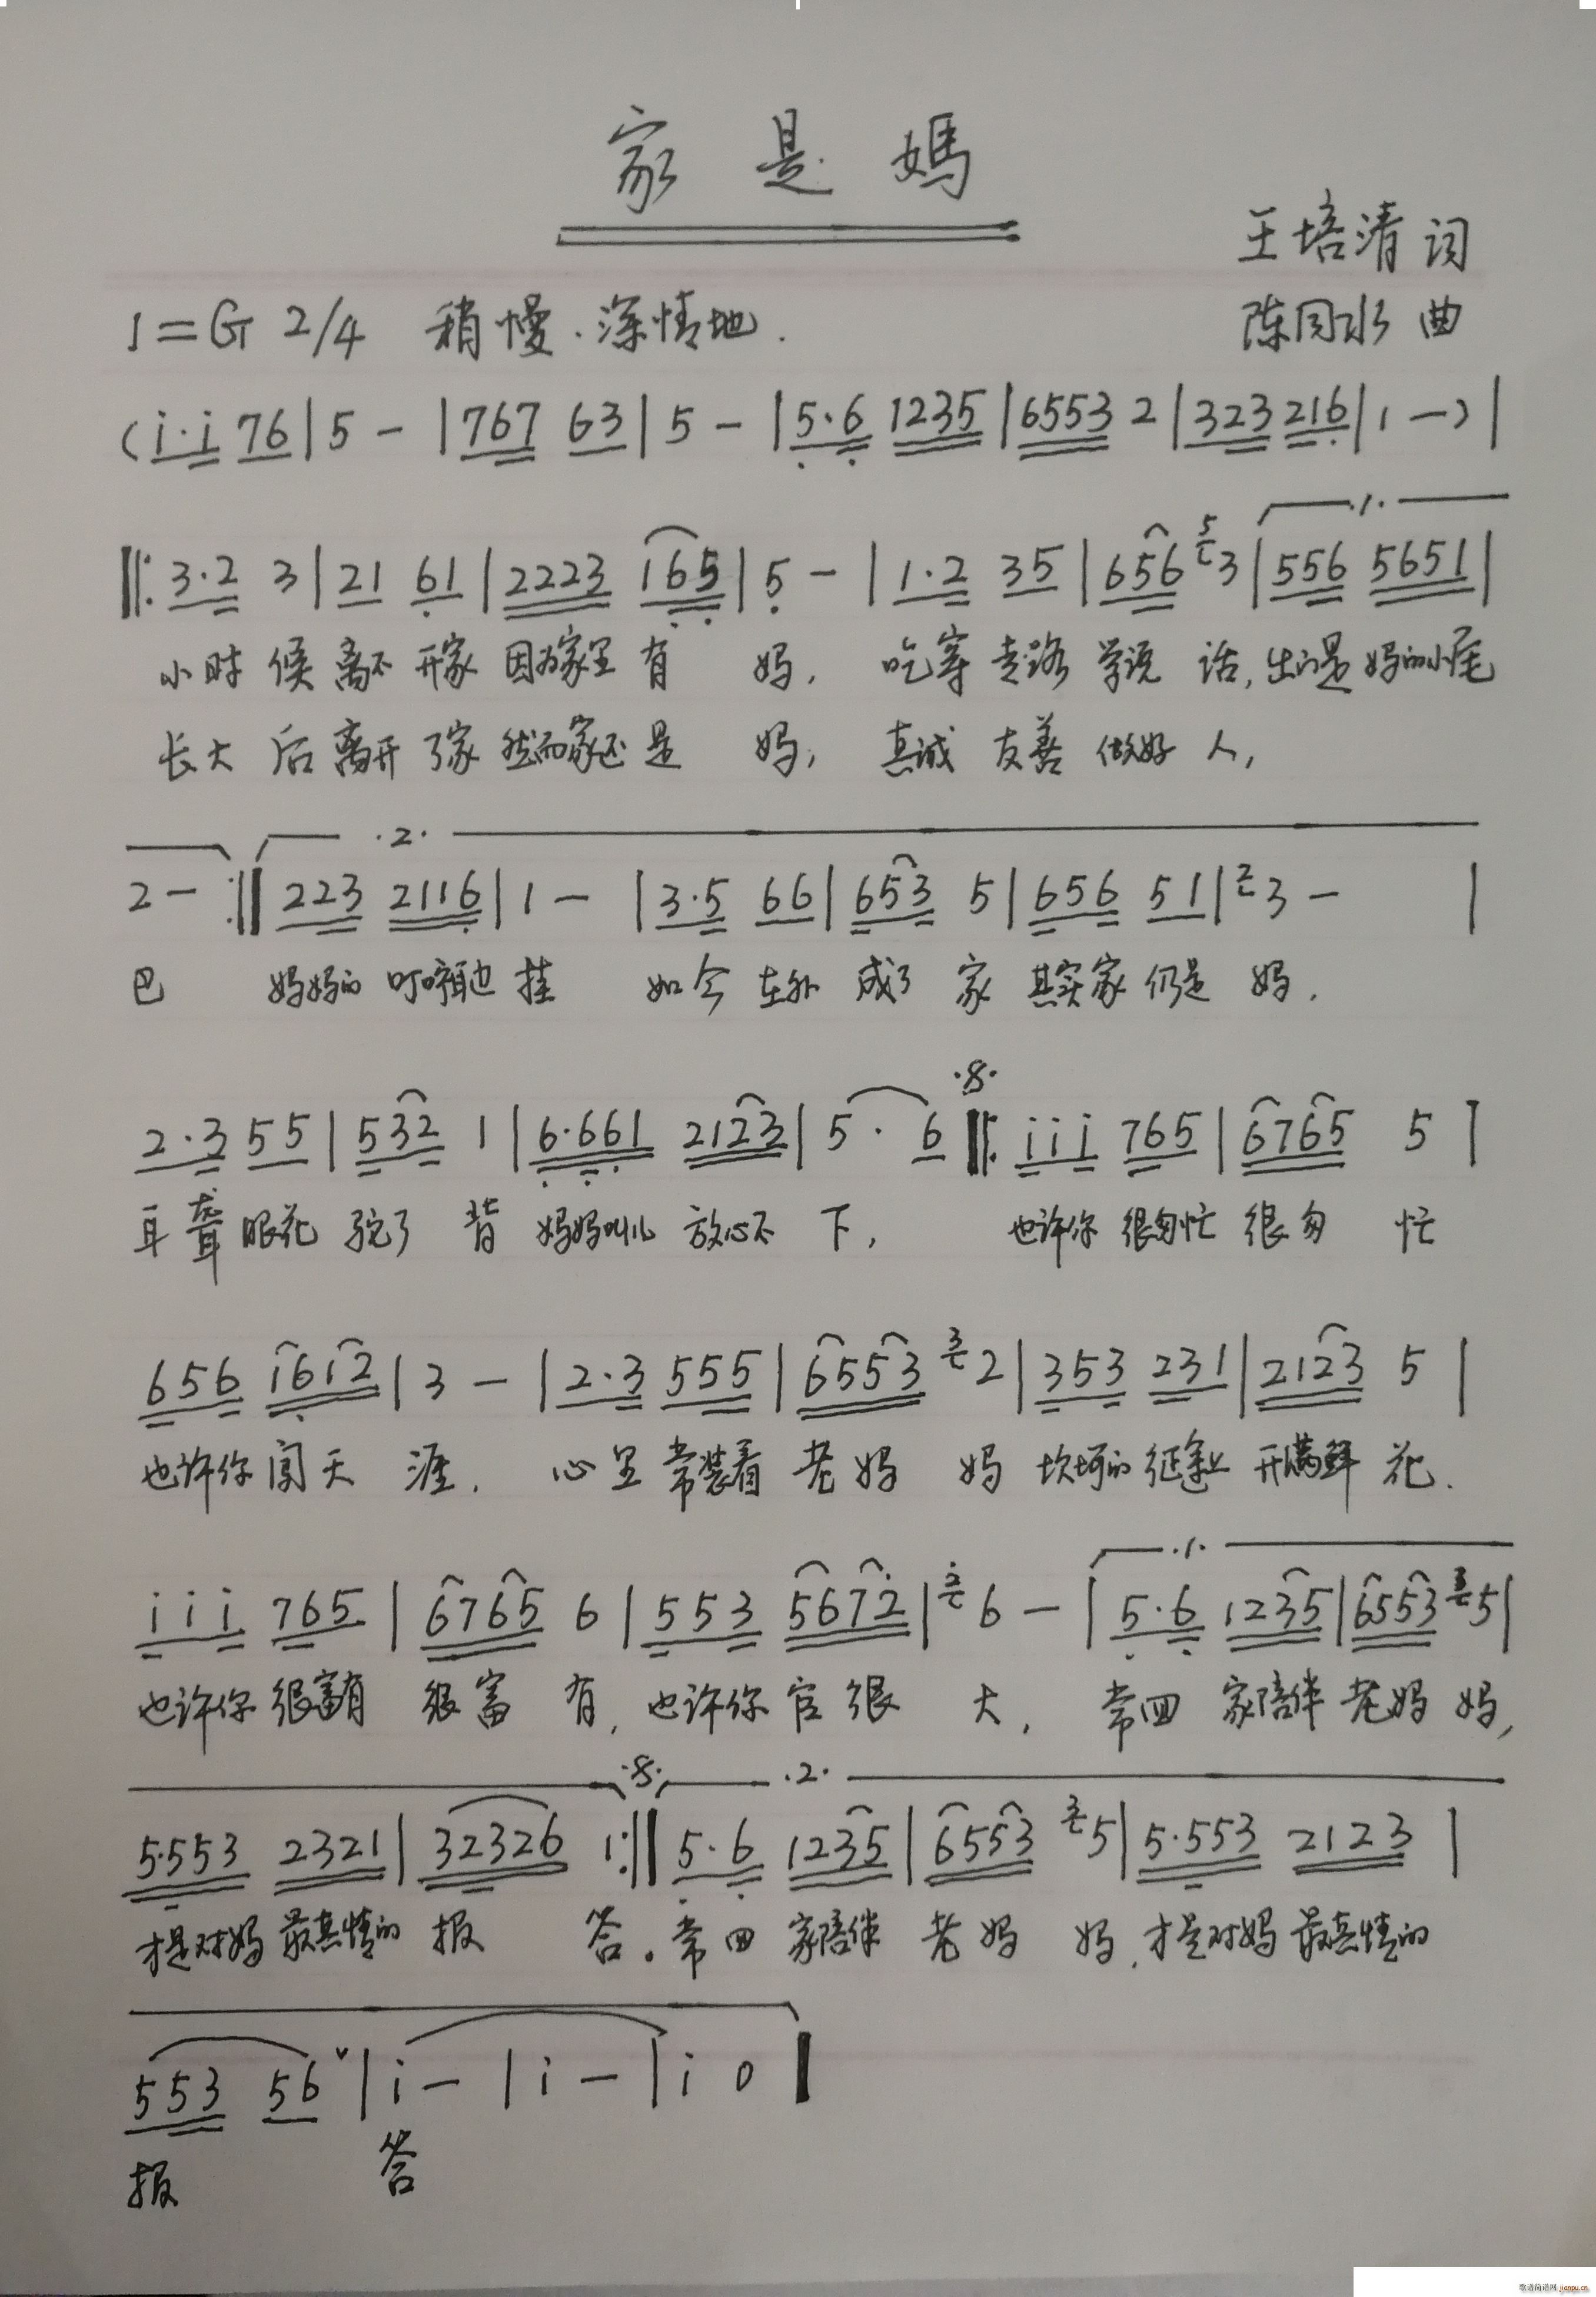 家是媽
王培清 词
1=G 2/4 稍慢.深情地.
陈同水 曲
(i·i 76|5 - |767 63|5 - |5·6 1235|6553 2|323 216|1 -)|
1.
‖: 3·2 3|21 61|2223 165|5 - |1·2 35|656 5 3|556 5651|
小时 候 离不 开家 因为家里 有 妈, 吃穿 走路 学说 话, 出门是 妈的小尾
长大 后 离开 了家 然而家还 是 妈, 真诚 友善 做好 人,
2.
2 - :‖ 223 2116|1 - |3·5 66|653 5|656 51|2 3 - |
巴 妈妈的 叮咛耳边 挂 如今 在外 成了 家 其实家 仍是 妈.
·S·
2·3 55|532 1|6·661 2123|5· 6‖: iii 765|6765 5|
耳聋 眼花 驼了 背 妈妈叫儿 放心不 下, 也许你 很匆忙 很匆 忙
656 1612|3 - |2·3 555|6553 3 2|353 231|2123 5|
也许你 闯天 涯. 心里 常装着 老妈 妈 坎坷的 征途上 开满鲜 花.
1.
iii 765|6765 6|553 5672|2 6 - |5·6 1235|6553 3 5|
也许你 很富有 很富 有, 也许你 官很 大, 常回 家陪伴 老妈 妈,
·S· 2.
5·553 2321|32326 1:‖ 5·6 1235|6553 3 5|5·553 2123|
才是对妈 最真情的 报 答。常回 家陪伴 老妈 妈,才是对妈 最真情的
553 56 ˅|i - |i - |i 0‖
报 答
歌谱简谱网 jianpu.cn